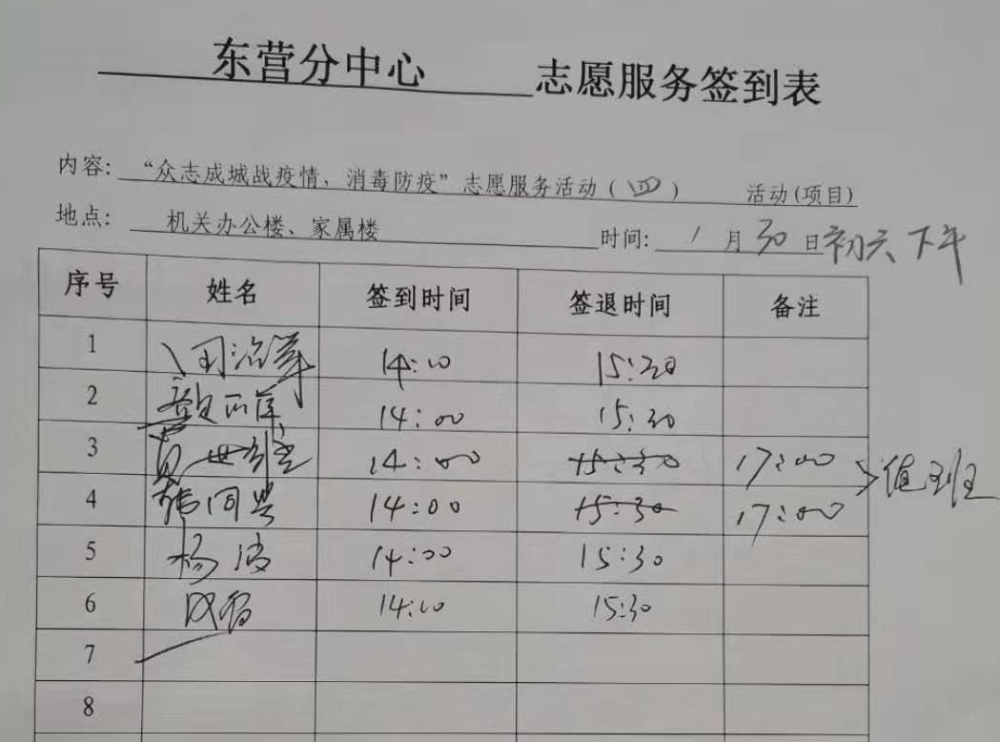 东营分中心 志愿服务签到表
内容: “众志成城战疫情、消毒防疫”志愿服务活动(四) 活动(项目)
地点: 机关办公楼、家属楼 时间: 1月30日初六下午
序号 姓名 签到时间 签退时间 备注
1 14:00 15:30
2 14:00 15:30
3 14:00 15:30 17:00
4 张同兴 14:00 15:30 17:00 值班
5 杨波 14:00 15:30
6 14:00 15:30
7
8